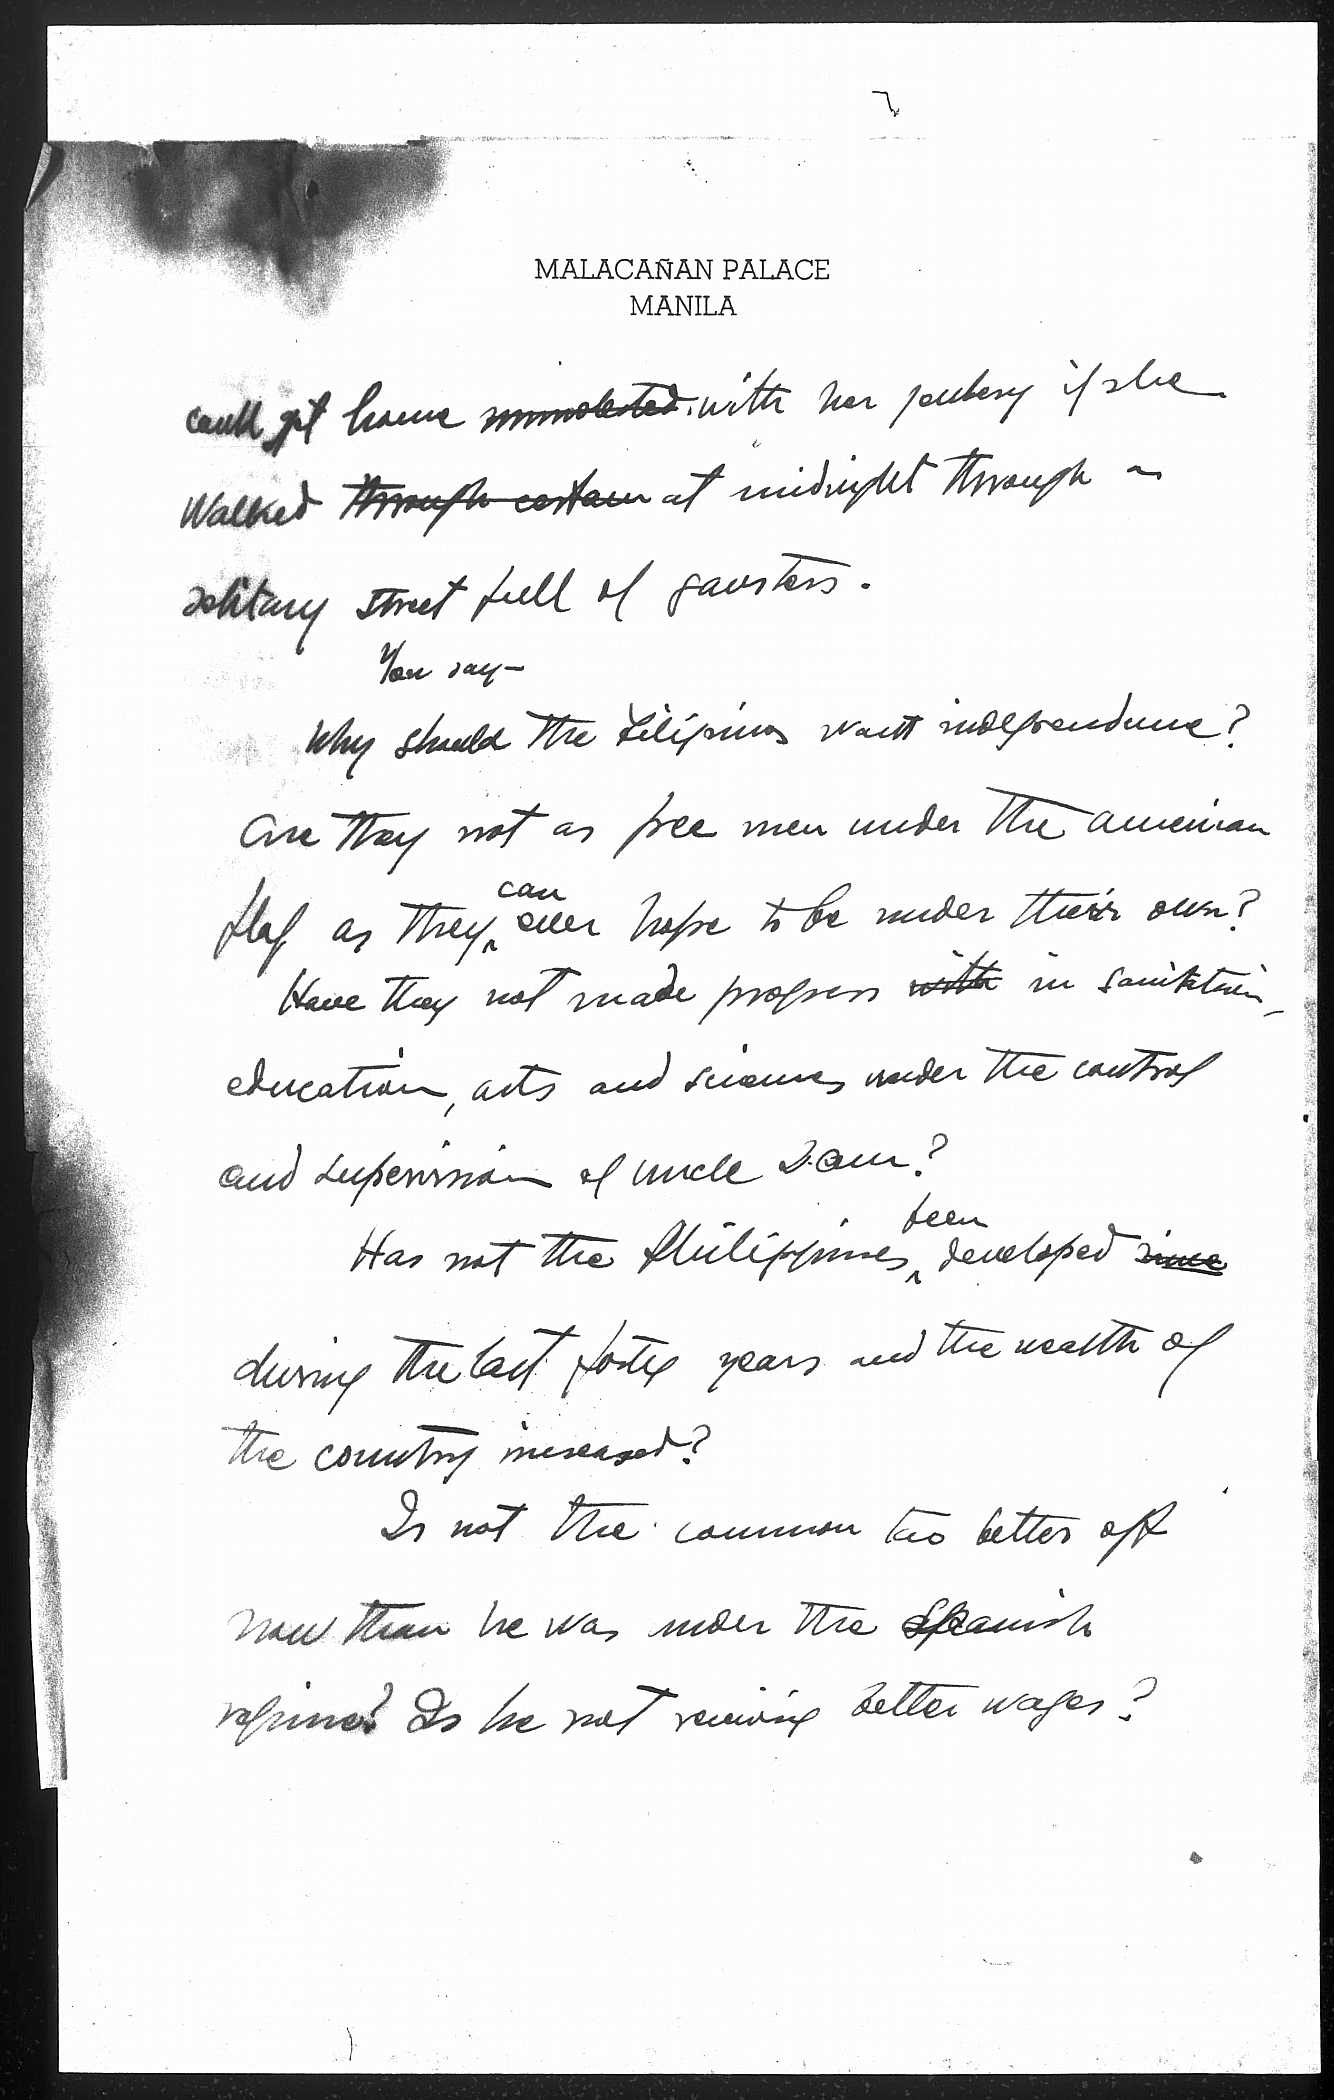 7
MALACAÑAN PALACE
MANILA
could get home unmolested with her if she
walked through certain at midnight through a
solitary street full of gansters.
You say—
Why should the Filipinos want independence?
Are they not as free men under the American
flag as they can ever hope to be under their own?
Have they not made progress with in sanitation,
education, arts and sciences under the control
and supervision of Uncle Sam?
Has not the Philippines been developed since
during the last forty years and the wealth of
the country increased?
Is not the common tao better off
now than he was under the Spanish
regime? Is he not receiving better wages?